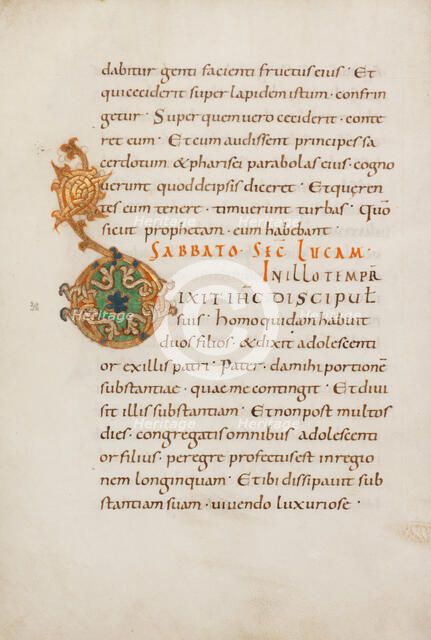 dabitur genti facienti fructus eius · Et
qui ceciderit super lapidem istum · confrin
getur · Super quem vero ceciderit · conte
ret eum · Et cum audissent principes sa
cerdotum & pharisei parabolas eius · cogno
verunt quod de ipsis diceret · Et quęren
tes eum tenere · timuerunt turbas · Quō
sicut prophetam · eum habebant ·
SABBATO · SEC̄ LUCAM ·
IN ILLO TEMPR̄
DIXIT IHC̄ DISCIPUL̄
suis · homo quidam habuit
duos filios · & dixit adolescenti
or ex illis patri · Pater · da mihi portionē
substantiae · quae me contingit · Et divi
sit illis substantiam · Et non post multos
dies · congregatis omnibus adolescenti
or filius · peregre profectus est in regio
nem longinquam · Et ibi dissipavit sub
stantiam suam · vivendo luxuriose ·
Heritage
Heritage
Heritage
Heritage
Heritage
Heritage